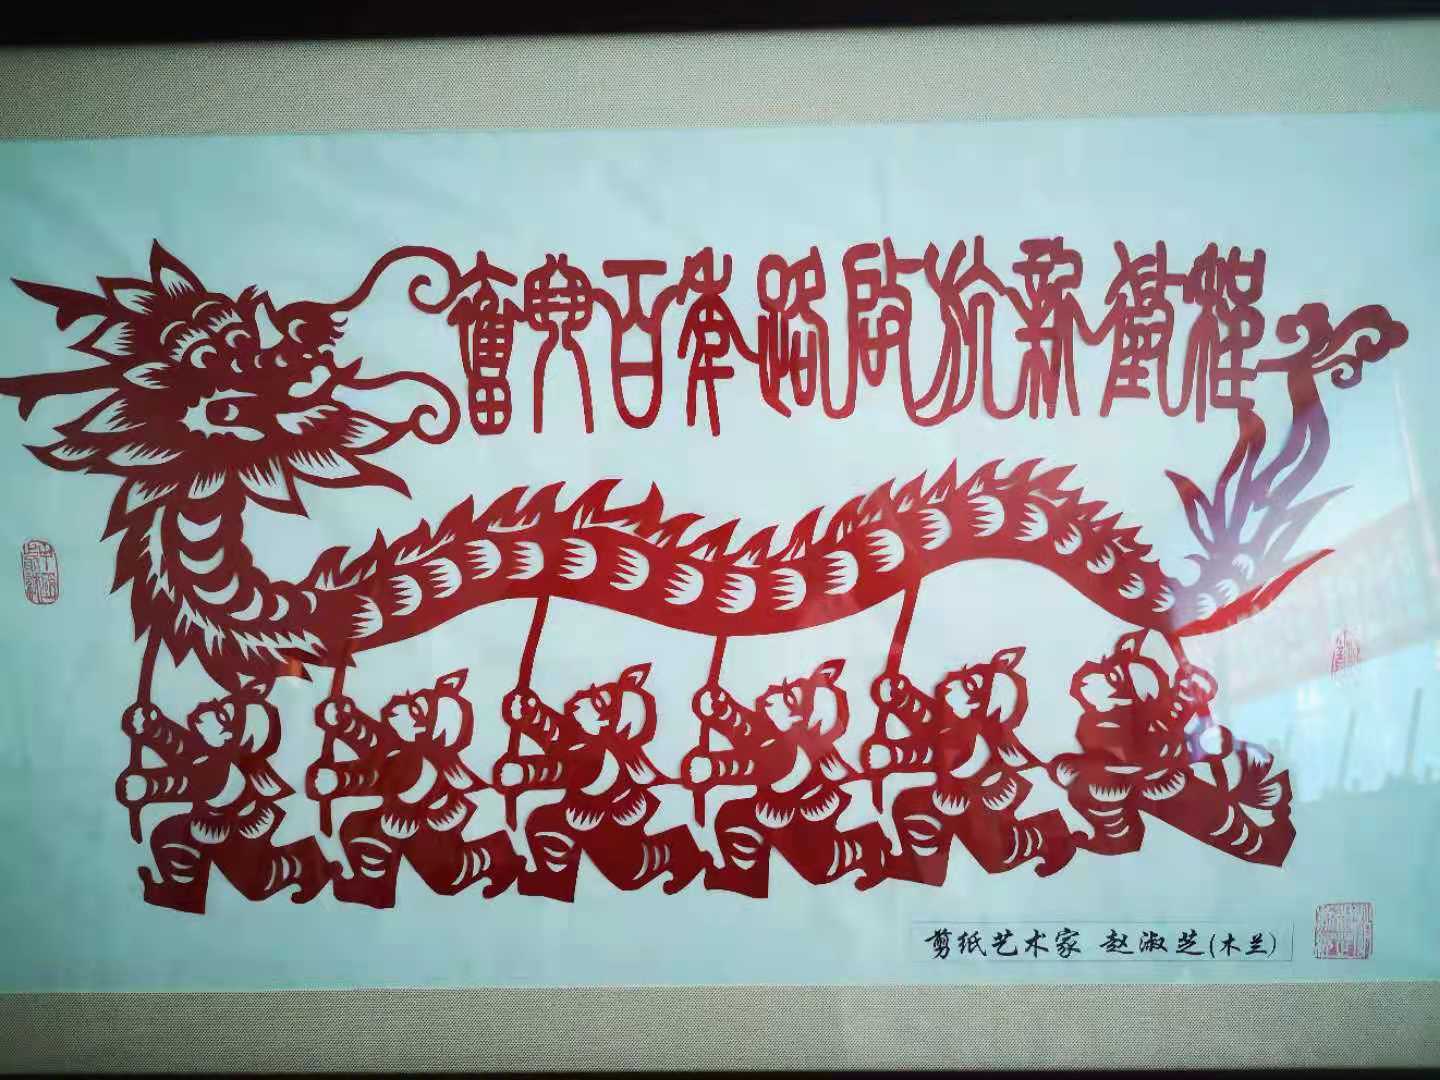 奮興百年路啟航新徵程
剪纸艺术家 赵淑芝(木兰)